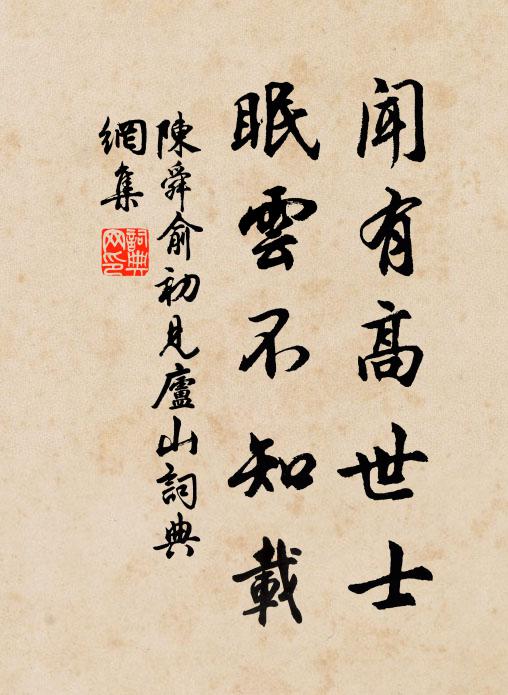 聞有高世士
眠雲不知載
陳舜俞初見廬山詞典
網集
詞典網印